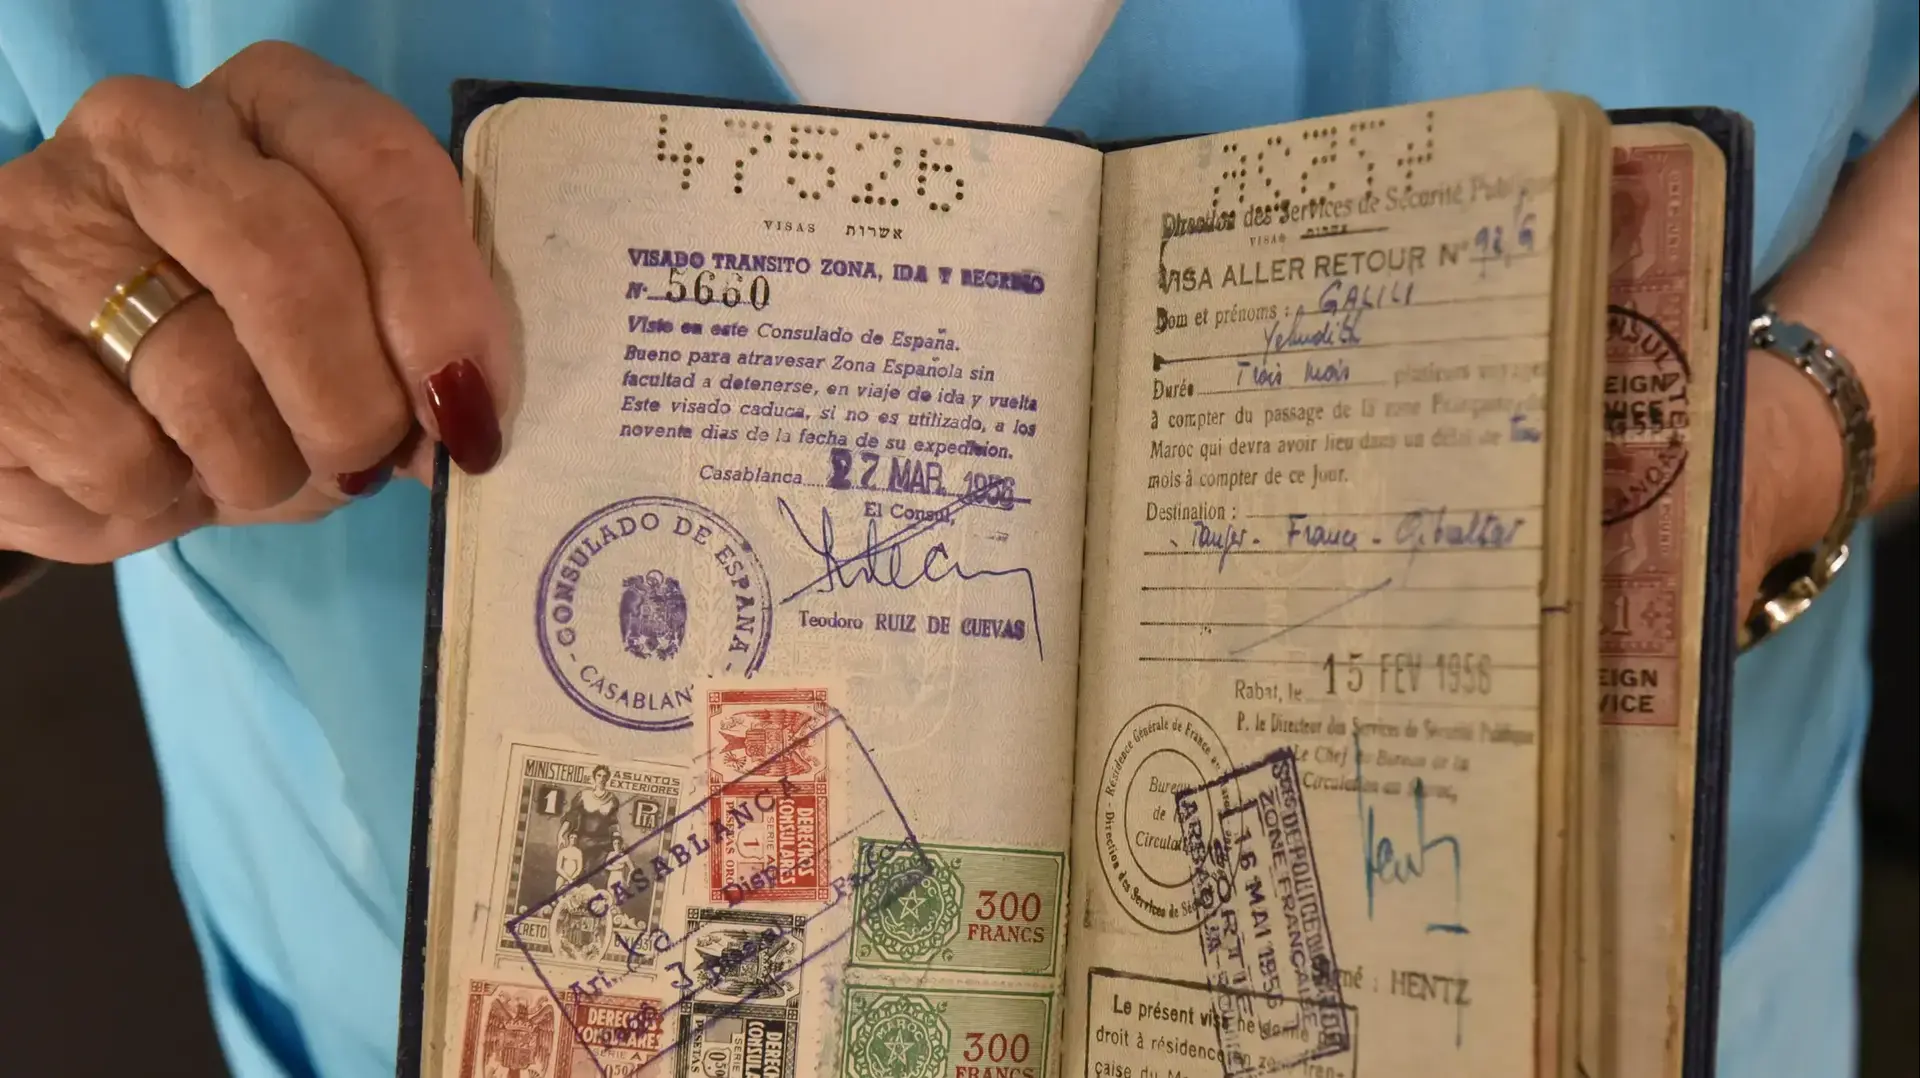 47526
VISAS אשרות
VISADO TRANSITO ZONA, IDA Y REGRESO
N.º 5660
Visto en este Consulado de España.
Bueno para atravesar Zona Española sin
facultad a detenerse, en viaje de ida y vuelta
Este visado caduca, si no es utilizado, a los
noventa dias de la fecha de su expedision.
Casablanca 27 MAR. 1956
El Consul,
Teodoro RUIZ DE CUEVAS
CONSULADO DE ESPAÑA
- CASABLAN
MINISTERIO DE ASUNTOS
EXTERIORES
1 PTA
DECRETO
DERECHOS
CONSULARES
SERIE A
1
PESETAS ORO
CASABLANCA
Art.
DERECHOS
CONSULARES
SERIE A
0'50
DERECHOS
CONSULARES
SERIE
PESETAS
MAROC
300
FRANCS
MAROC
300
FRANCS
Direction des Services de Sécurité Publique
VISAS אשרות
VISA ALLER RETOUR N°
Nom et prénoms : GALILI
Yehudith
Durée Trois mois plusieurs voyages
à compter du passage de la zone Française du
Maroc qui devra avoir lieu dans un délai de Trois
mois à compter de ce Jour.
Destination :
Tanger - France - Gibraltar
Rabat, le 15 FEV 1956
P. le Directeur des Services de Sécurité Publique
Le Chef du Bureau de la
Circulation au Maroc,
Résidence Générale de France au
Direction des Services de Sé
Bureau
de la
Circulation
SCES DE POLICE
ZONE FRANÇAISE
16 MAI 1956
SORTIE
ARBAOUA
HENTZ
Le présent visa ne donne
droit à résidence en zone Fran-
çaise du
CONSULATE
EIGN
EIGN
VICE
1